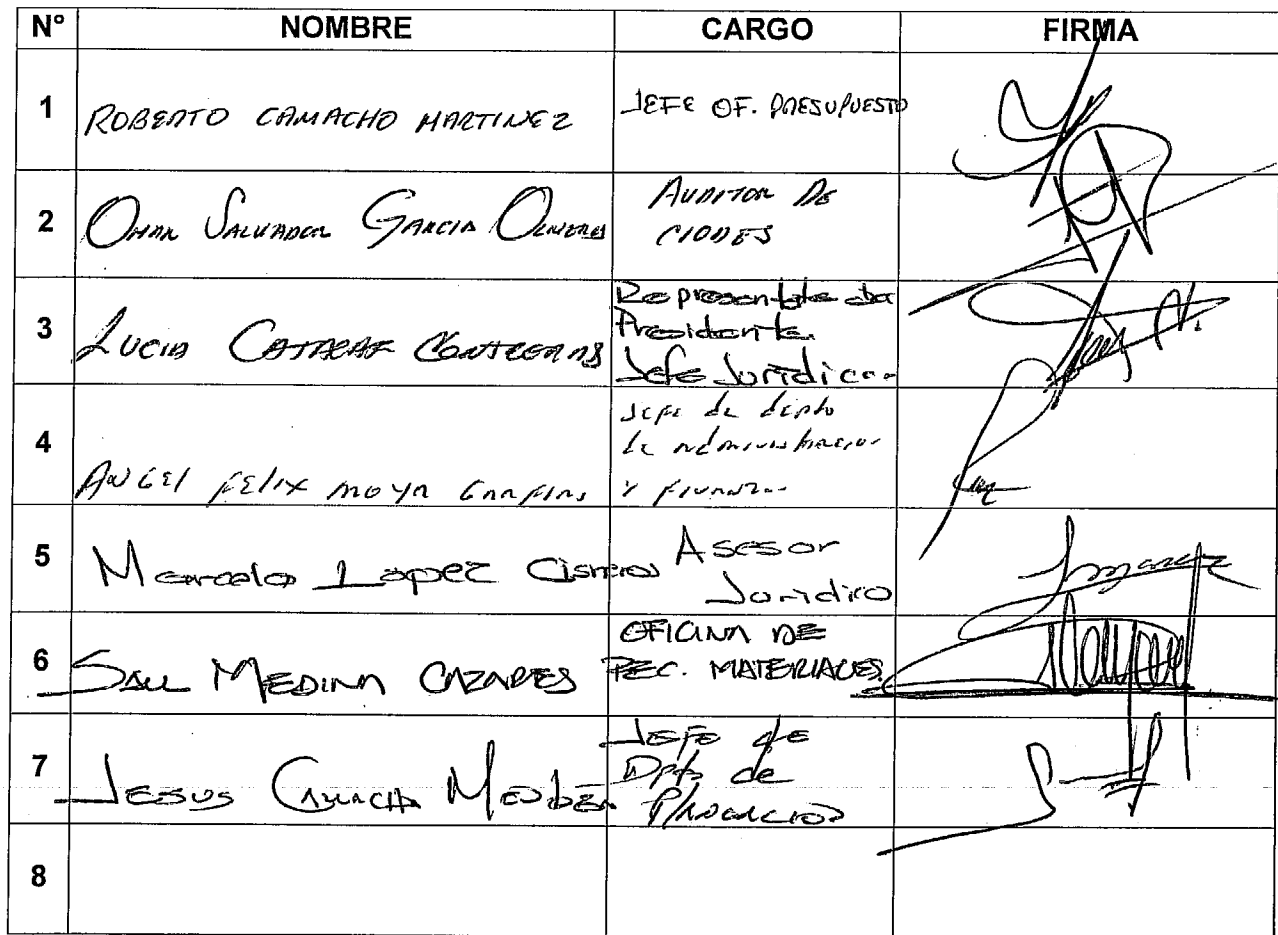 N° NOMBRE CARGO FIRMA
1 ROBERTO CAMACHO MARTINEZ JEFE OF. PRESUPUESTO
2 OMAR SALVADOR GARCIA AUDITOR DE
3 LUCIA CONTRERAS Representante
Presidente
Jefe Juridico
4 ANGEL FELIX MOYA Jefe de depto
de administracion
y finanzas
5 Marcelo Lopez Cisneros Asesor
Juridico
6 SAUL MEDINA CAZARES OFICINA DE
REC. MATERIALES
7 JESUS CAMACHO Jefe de
Dpto de
8